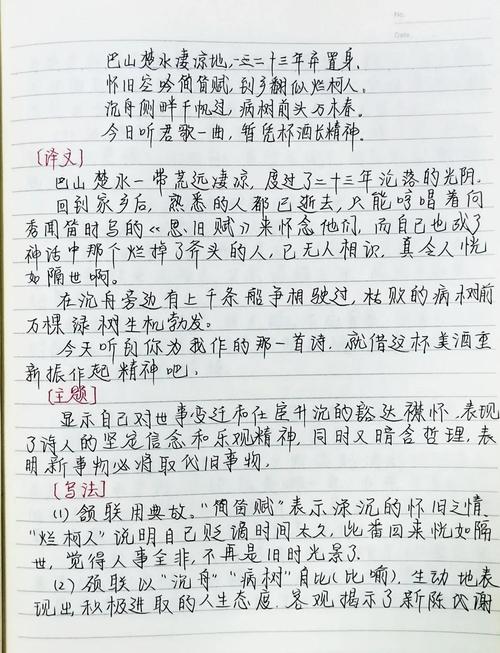 No.
Date.
巴山楚水凄凉地,二三二十三年弃置身.
怀旧空吟简笛赋,到乡翻似烂柯人.
沉舟侧畔千帆过,病树前头万木春.
今日听君歌一曲,暂凭杯酒长精神.
[译文]
巴山楚水一带荒远凄凉,度过了二十三年沦落的光阴.
回到家乡后,熟悉的人都已逝去,只能哼唱着向
秀闻笛时写的《思旧赋》来怀念他们,而自己也成了
神话中那个烂掉了斧头的人,已无人相识,真令人恍
如隔世啊.
在沉舟旁边有上千条船争相驶过,枯败的病树前
万棵绿树生机勃发.
今天听到你为我作的那一首诗,就借这杯美酒重
新振作起精神吧.
[主题]
显示自己对世事变迁和仕宦升沉的豁达襟怀,表现
了诗人的坚定信念和乐观精神,同时又暗含哲理,表
明新事物必将取代旧事物.
[写法]
(1)颔联用典故."简笛赋"表示深沉的怀旧之情.
"烂柯人"说明自己贬谪时间太久,此番回来恍如隔
世,觉得人事全非,不再是旧时光景了.
(2)颈联以"沉舟""病树"自比(比喻),生动地表
现出积极进取的人生态度.客观揭示了新陈代谢